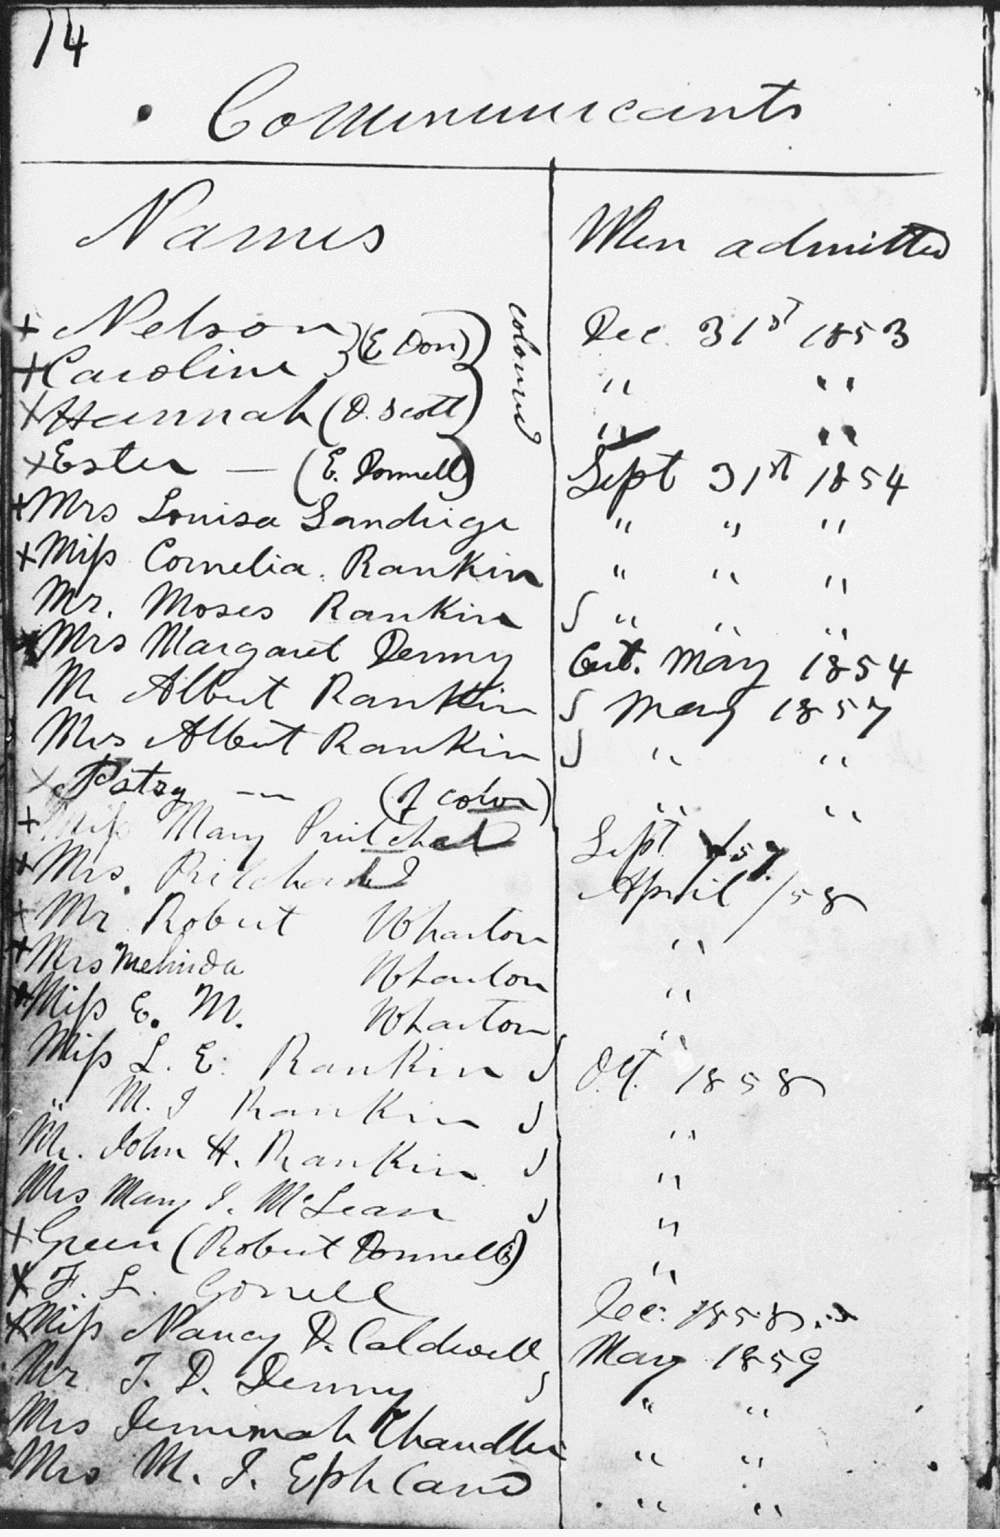 14
Communicants
Names When admitted
+ Nelson (E Don) coloured Dec. 31st 1853
+ Caroline " "
+ Hannah (D. Scott) " "
+ Ester — (E. Donnell) Sept 31st 1854
+ Mrs Louisa Sandrige " " "
+ Miss Cornelia Rankin " " "
Mr. Moses Rankin " " "
+ Mrs Margaret Denny Cert. May 1854
Mr Albert Rankin May 1857
Mrs Albert Rankin " "
+ Patsy — (of color) " "
+ Miss Mary Pritchard Sept /57
+ Mrs. Pritchard April /58
+ Mr Robert Wharton "
+ Mrs Melinda Wharton "
+ Miss E. M. Wharton "
Miss L. E. Rankin Oct. 1858
" M. J Rankin "
Mr. John H. Rankin "
Mrs Mary J. McLean "
+ Green (Robert Donnell) "
+ F. L. Gorrell Dec. 1858
+ Miss Nancy D. Caldwell May 1859
Mr T. D. Denny " "
Mrs Jemimah Chandler " "
Mrs M. J. Ephland " "